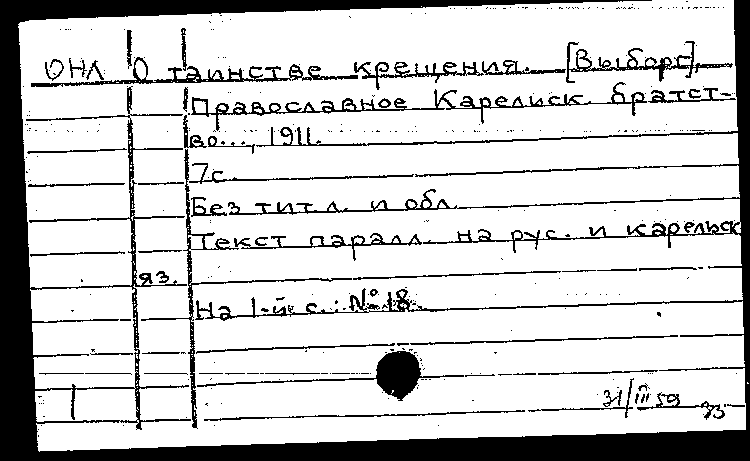 ОНЛ О таинстве крещения. [Выборг],
Православное Карельск. братст-
во..., 1911.
7с.
Без тит.л. и обл.
Текст паралл. на рус. и карельск
яз.
На 1-й с.: № 18.
31/III 59